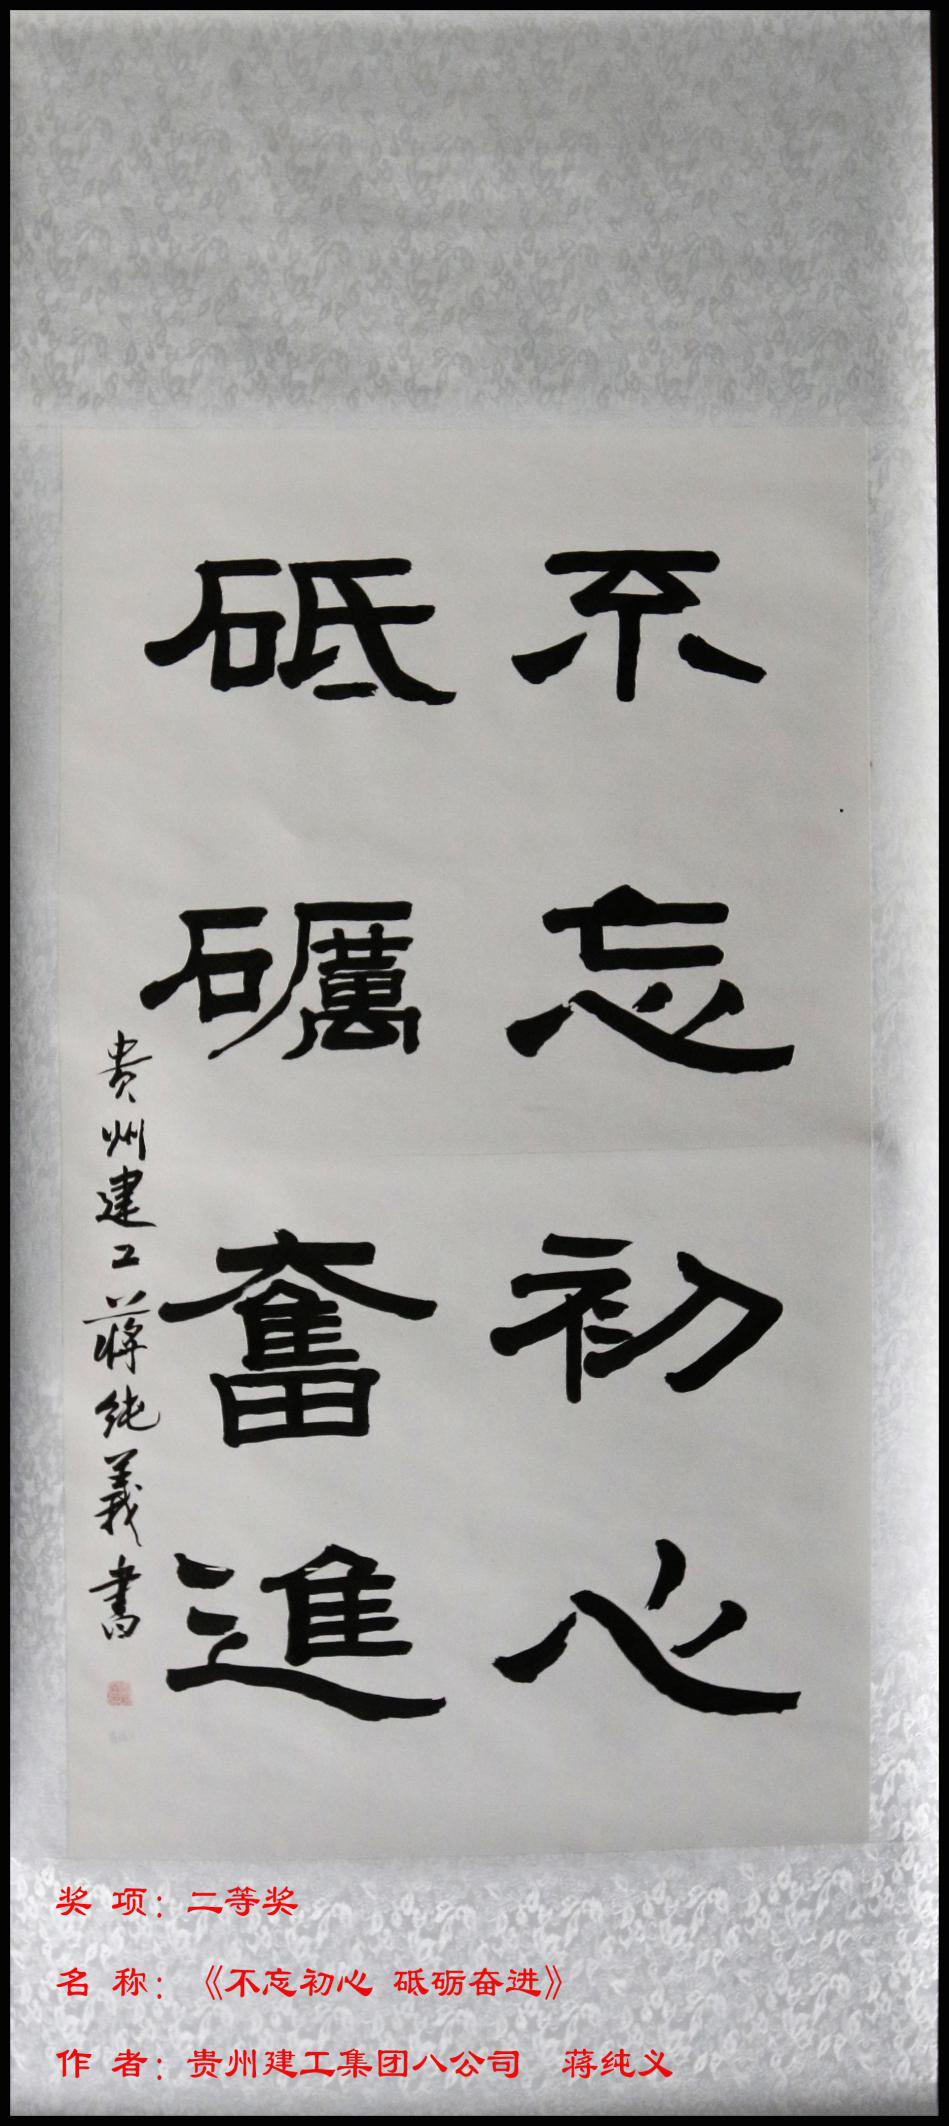 不忘初心
砥礪奮進
贵州建工蔣純義書
奖 项：二等奖
名 称：《不忘初心 砥砺奋进》
作 者：贵州建工集团八公司 蒋纯义